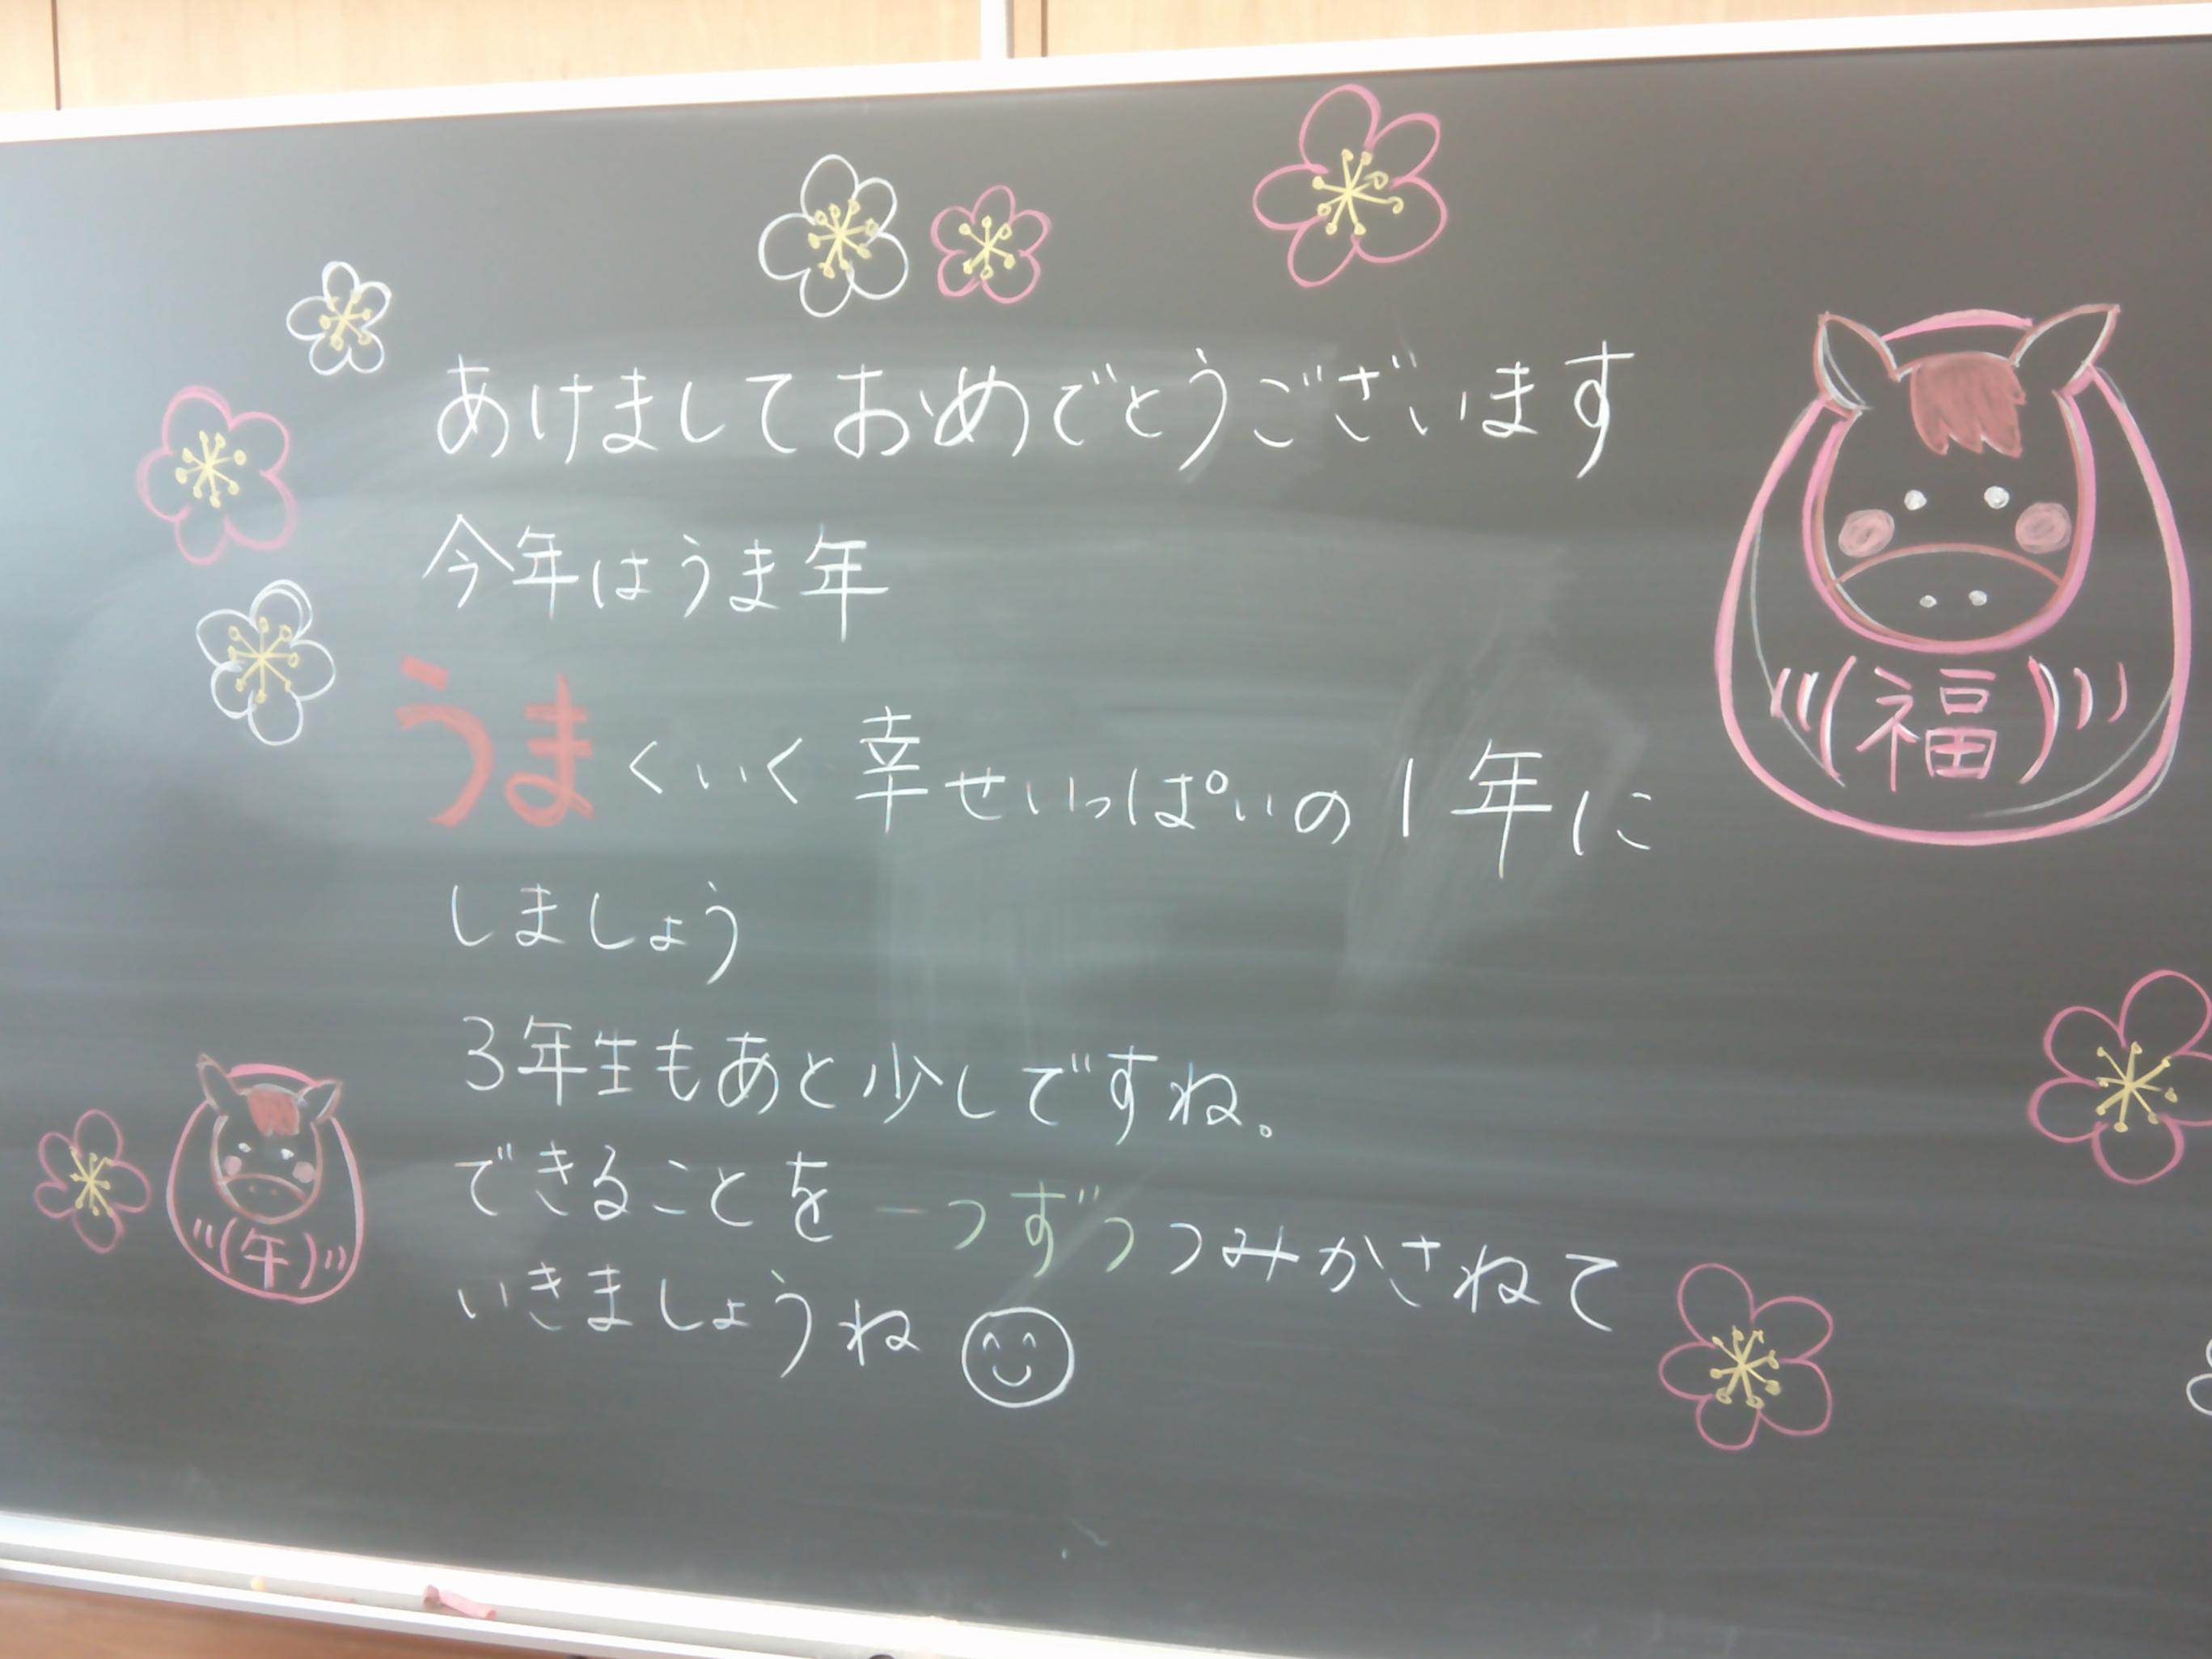 あけましておめでとうございます
今年はうま年
うまくいく幸せいっぱいの1年に
しましょう
3年生もあと少しですね。
できることを一つずつつみかさねて
いきましょうね
(福)
(午)